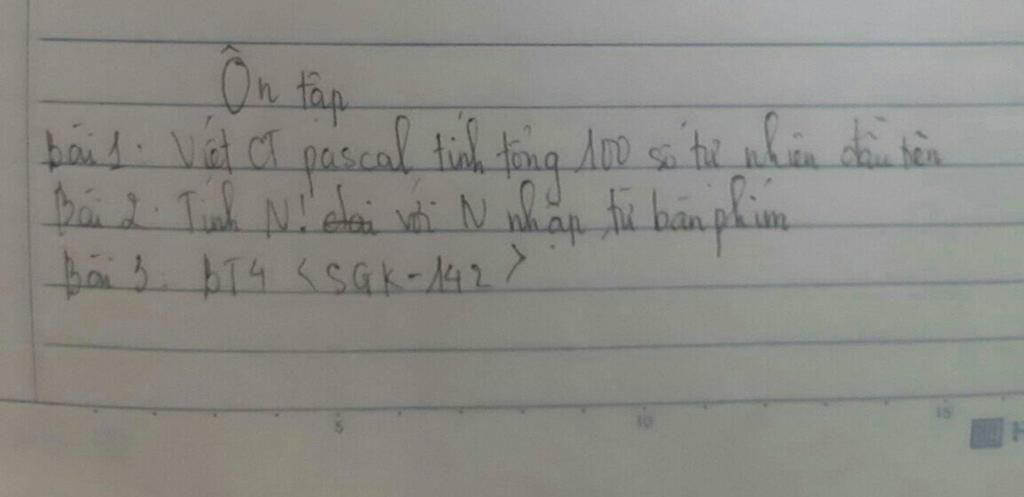 Ôn tập
Bài 1. Viết CT pascal tính tổng 100 số tự nhiên đầu tiên
Bài 2. Tính N! với N nhập từ bàn phím
Bài 3. BT4 <SGK-142>
5 10 15
H